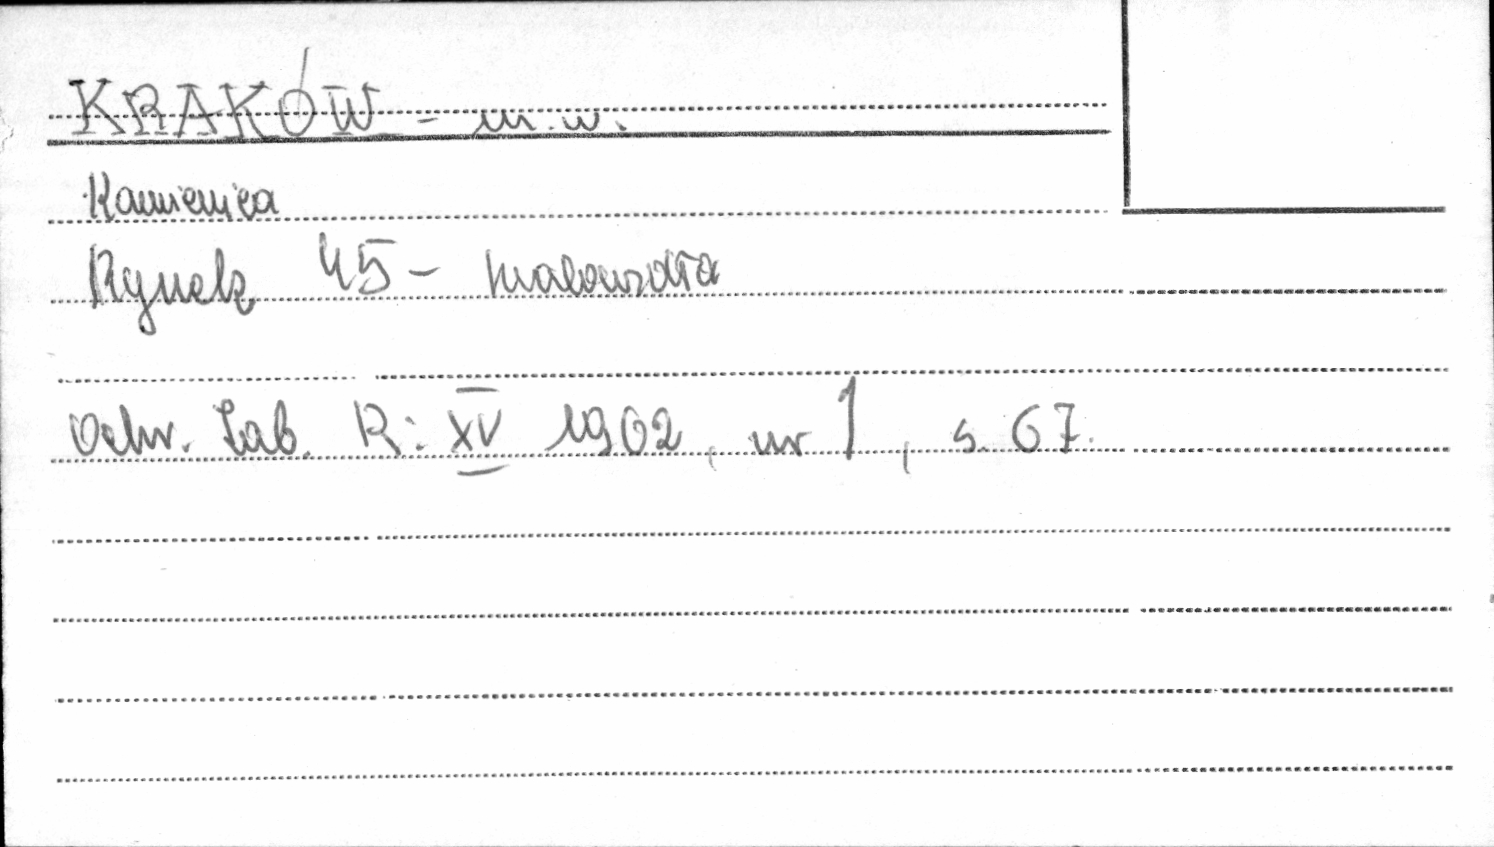 KRAKÓW - m.w.
Kamienica
Rynek 45 - malowidła
Ochr. Zab. R. XV 1962, nr 1, s. 67.